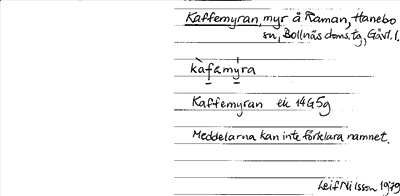 Kaffemyran, myr å Raman, Hanebo
sn, Bollnäs doms.tg, Gävl. l.
kàfemýra
Kaffemyran ek 14G5g
Meddelarna kan inte förklara namnet.
Leif Nilsson 1979